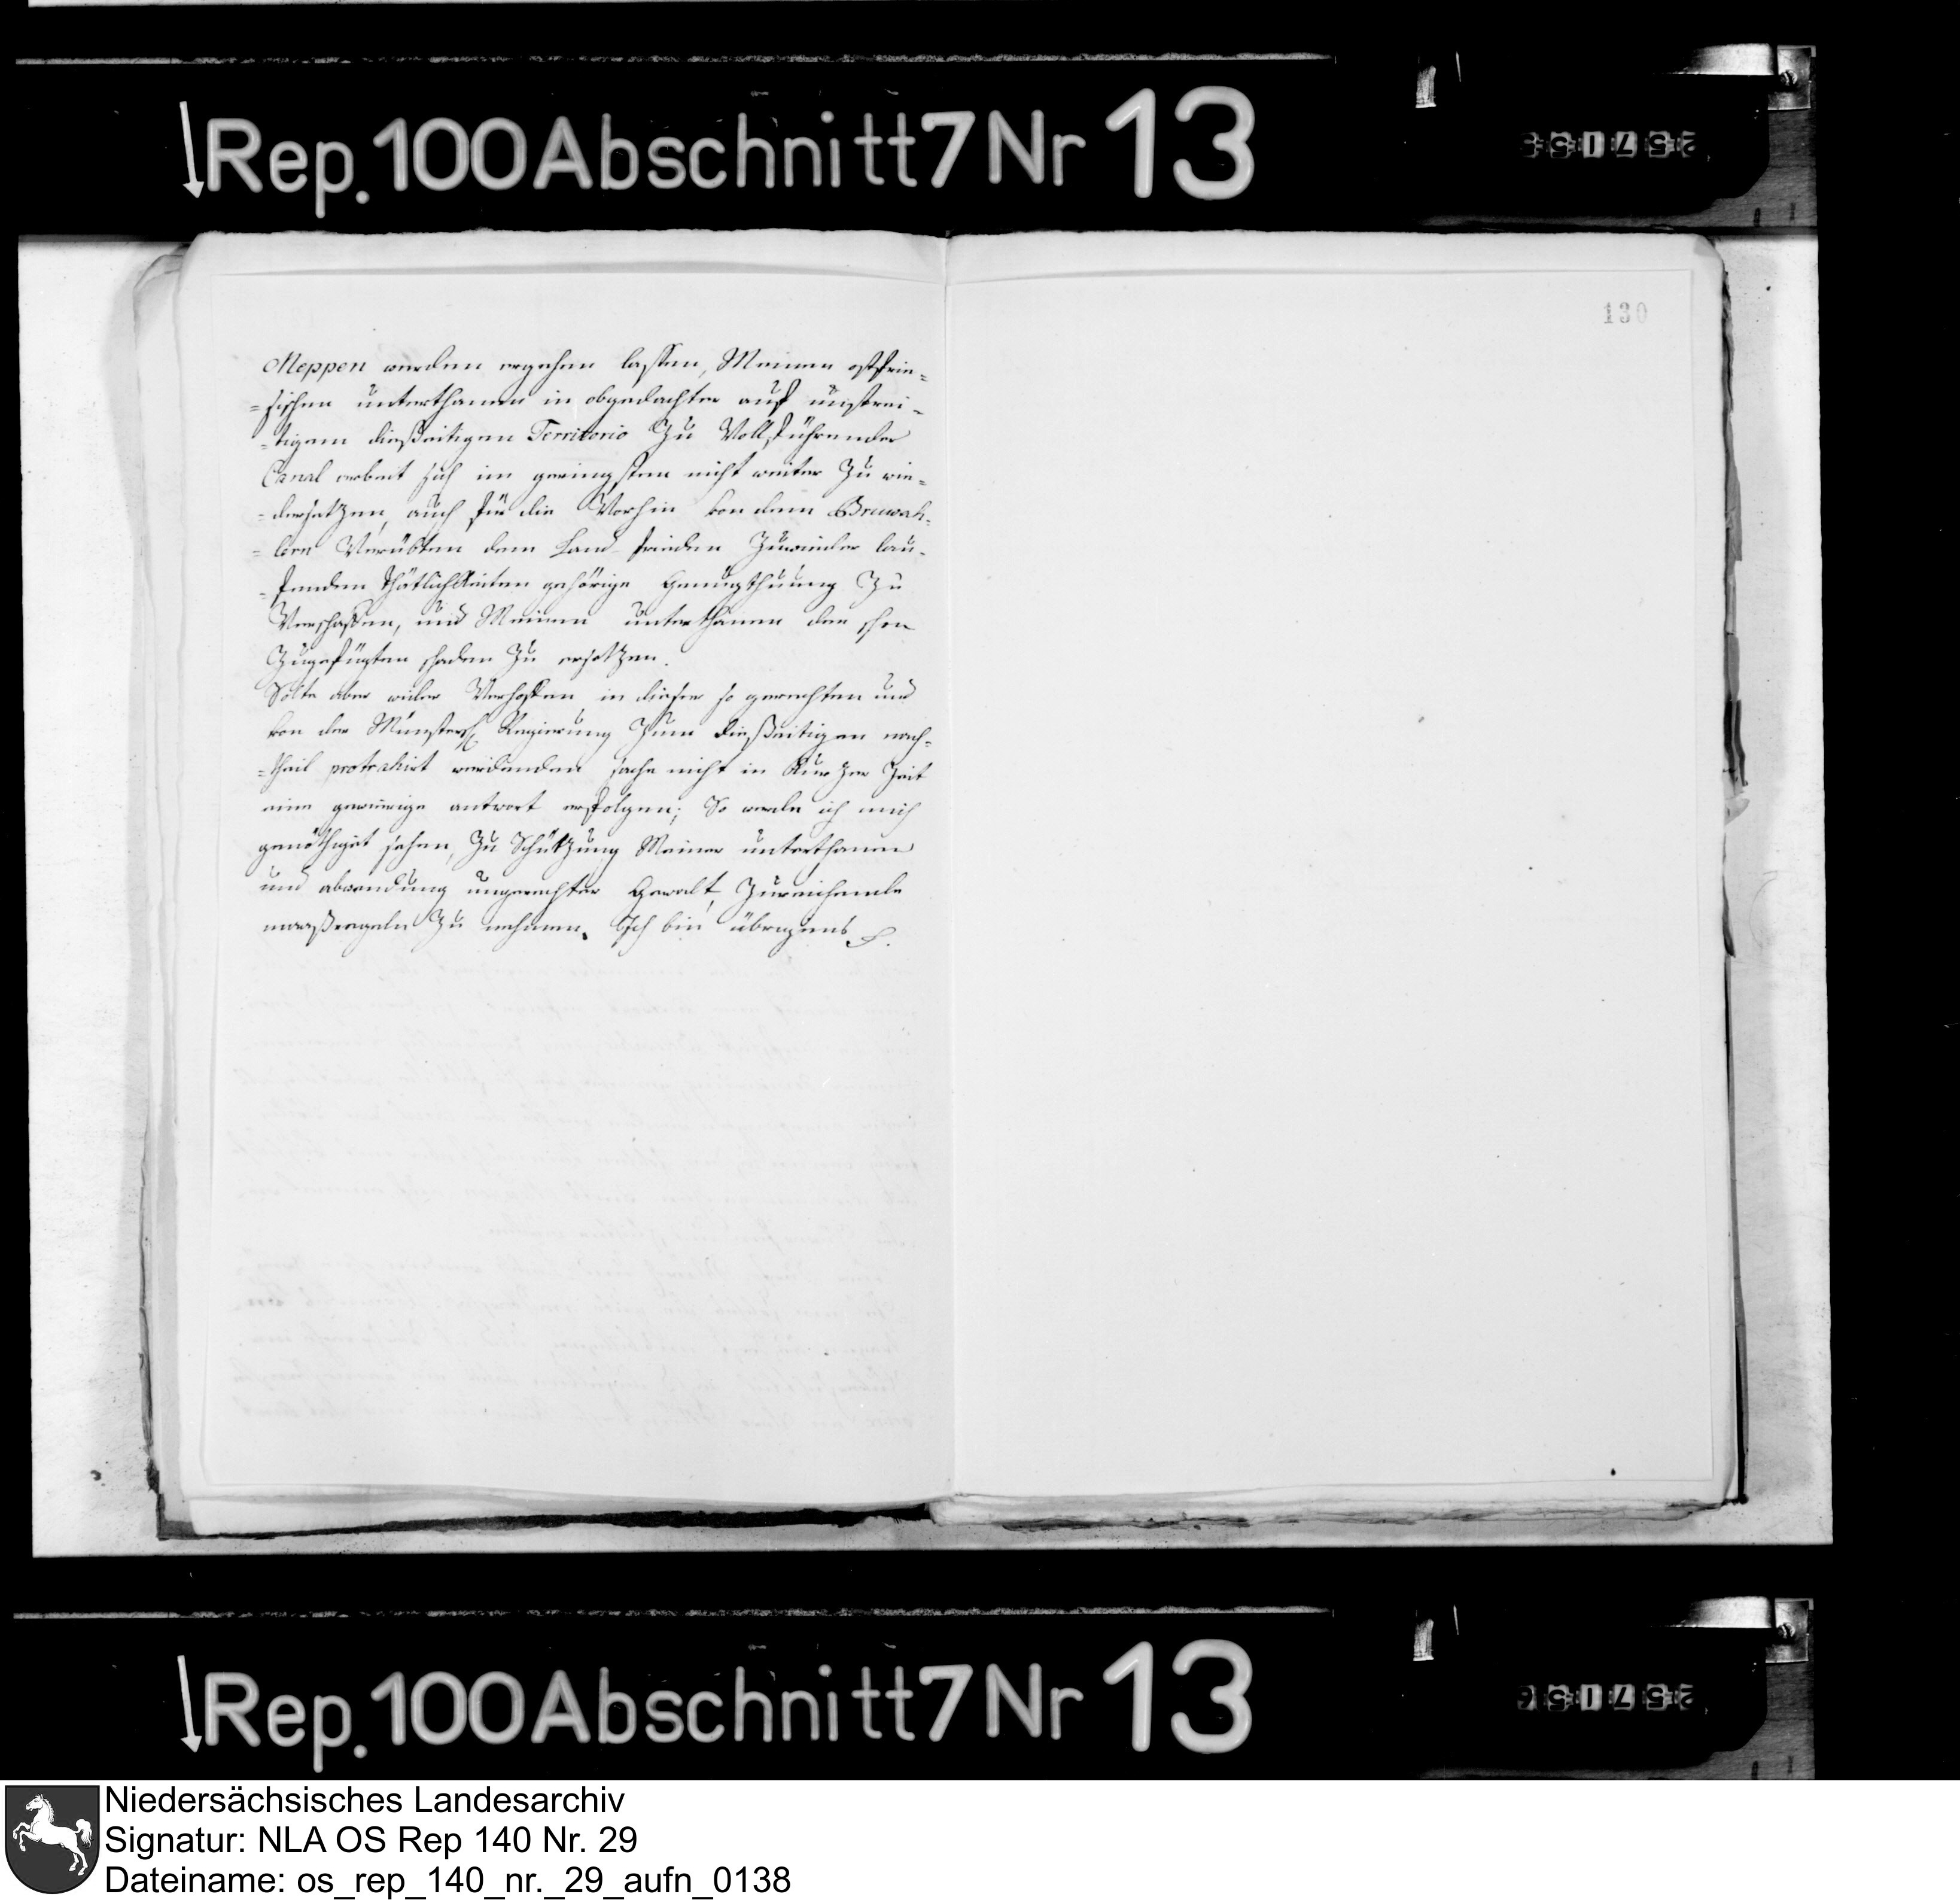 Rep. 100 Abschnitt 7 Nr 13
130
Meppen werden ergehen lassen, Meinen ostfrie=
=sischen unterthanen in obgedachter auf unstrei=
=tigem diesseitigen Territorio Zu Vollführender
Canal arbeit sich im geringsten nicht weiter Zu wie=
=dersetzen, auch für die Vorhin von denen
Verübten dem Land frieden Zuwieder lau=
=fenden thätlichkeiten gehörige Genugthuung Zu
Verschaffen, und Meinen unterthanen den
Zugefügten schaden Zu ersetzen.
Solte aber wider Verhoffen in dieser so gerechten und
von der Münstersch Regierung Zum diesseitigen nach=
=theil protrahirt werdenden sache nicht in Kurzer Zeit
eine gewierige antwort erfolgen; So werde ich mich
genöthiget sehen, Zu Schützung Meiner unterthanen
und abwendung ungerechter Gewalt, Zureichende
maaßregeln Zu nehmen. Ich bin übrigens
Rep. 100 Abschnitt 7 Nr 13
Niedersächsisches Landesarchiv
Signatur: NLA OS Rep 140 Nr. 29
Dateiname: os_rep_140_nr._29_aufn_0138